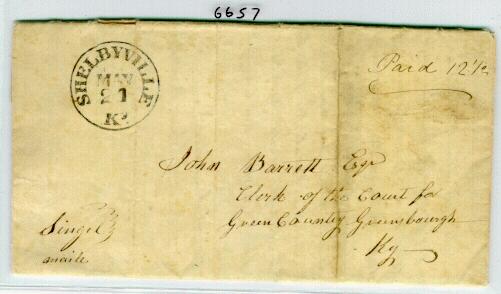 6657
SHELBYVILLE
MAY
21
Ky
Paid 12½
John Barrett Esqr
Clerk of the Court for
Green County Greensbourgh
Ky
Singel
maile